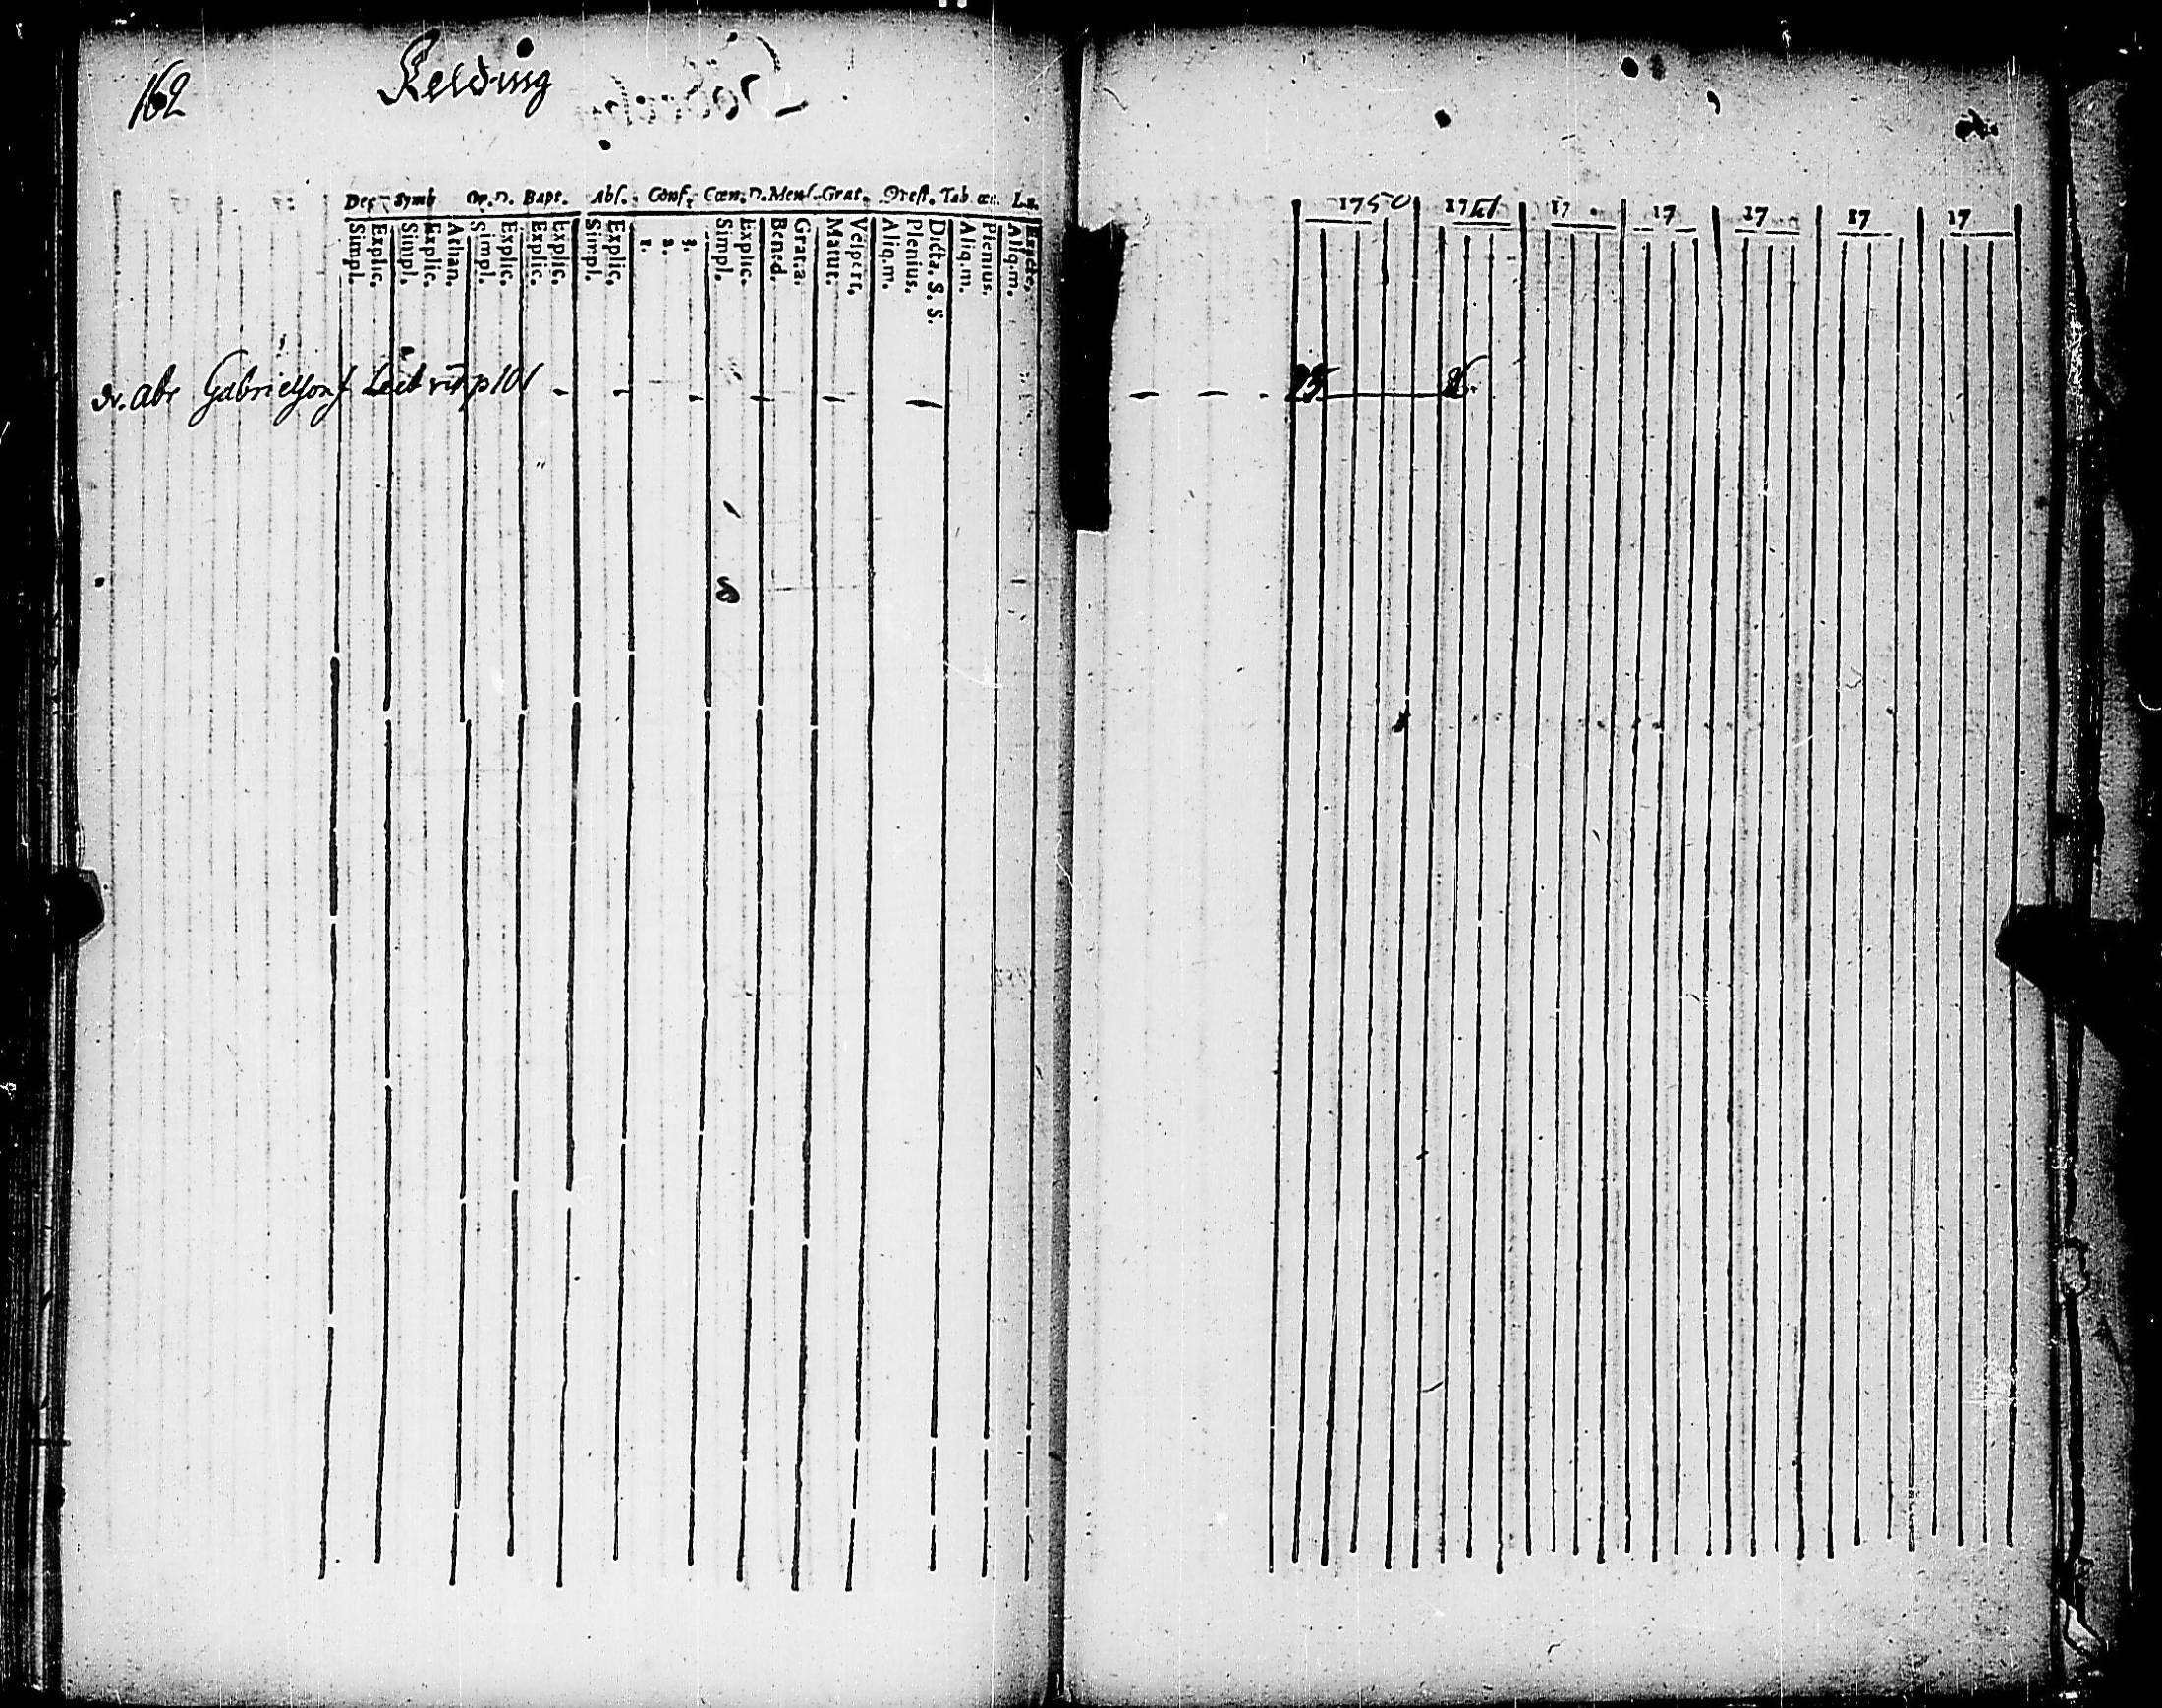 162
Kelding
Dec. Symb Or. D. Bapt. Abs. Conf. Cœn. D. Mens. Grat. Prest. Tab. œc. L.s.
Simpl. Explic. Simpl. Explic. Athan. Simpl. Explic. Explic. Explic. Simpl. Explic. 1. 2. 3. Simpl. Explic. Bened. Grat.a. Matut. Vespert. Aliq.m. Plenius. Dicta. S. S. Aliq.m. Plenius. Aliq.m.
1750 1751 17 17 17 17 17
abr Gabrielson p 101 - - - - - - - - -